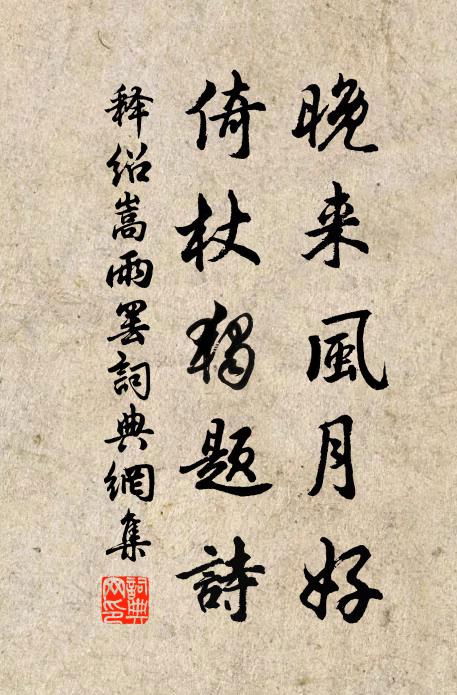 晚来風月好
倚杖獨題詩
释紹嵩雨罢詞典網集
詞典網印